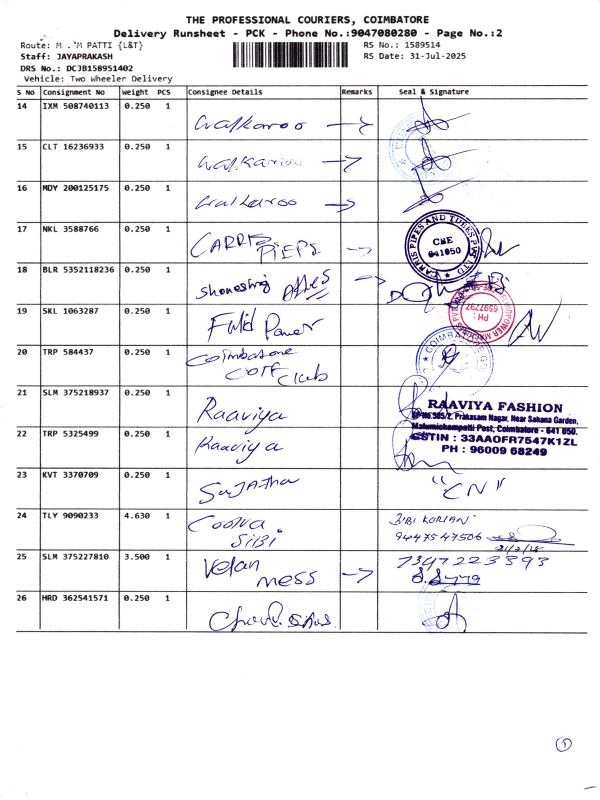 THE PROFESSIONAL COURIERS, COIMBATORE
Delivery Runsheet - PCK - Phone No.:9047080280 - Page No.:2
Route: M .'M PATTI {L&T}
RS No.: 1589514
Staff: JAYAPRAKASH
RS Date: 31-Jul-2025
DRS No.: DCJB158951402
Vehicle: Two Wheeler Delivery
S No Consignment No Weight PCS Consignee Details Remarks Seal & Signature
14 IXM 508740113 0.250 1 Walkaroo
15 CLT 16236933 0.250 1 Walkaroo
16 MDY 200125175 0.250 1 Walkaroo
17 NKL 3588766 0.250 1 CARRIS PIEPS
CARRIS PIPES AND TUBES PVT LTD
CBE
641050
18 BLR 5352118236 0.250 1
19 SKL 1063287 0.250 1 Fluid Power
PH :
6592797
20 TRP 584437 0.250 1 Coimbatore
Golf Club
21 SLM 375218937 0.250 1 Raaviya
RAAVIYA FASHION
SF No.505/2, Prakasam Nagar, Near Sahana Garden,
Malumichampatti Post, Coimbatore - 641 050.
GSTIN : 33AAOFR7547K1ZL
PH : 96009 68249
22 TRP 5325499 0.250 1 Raaviya
23 KVT 3370709 0.250 1 Sujatha "CN"
24 TLY 9090233 4.630 1
SiBi
BIBI KORIAN
9447547506
25 SLM 375227810 3.500 1 Velan
mess
7397223393
26 HRD 362541571 0.250 1
1